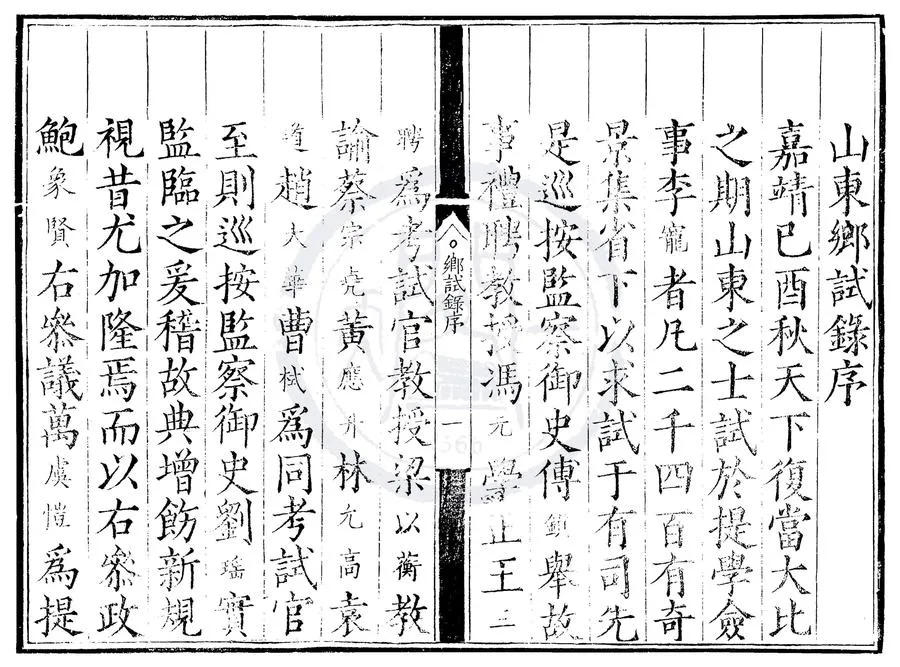 山東鄉試錄序
嘉靖己酉秋天下復當大比
之期山東之士試於提學僉
事李寵者凡二千四百有奇
景集省下以求試于有司先
是巡按監察御史傅鎮舉故
事禮聘教授馮元學正王三
聘為考試官教授梁以蘅教
諭蔡宗堯黃應升林允高袁
道趙大華曹栻為同考試官
至則巡按監察御史劉瑤實
監臨之爰稽故典增飭新規
視昔尤加隆焉而以右叅政
鮑象賢右叅議萬虞愷為提
鄉試錄序
一